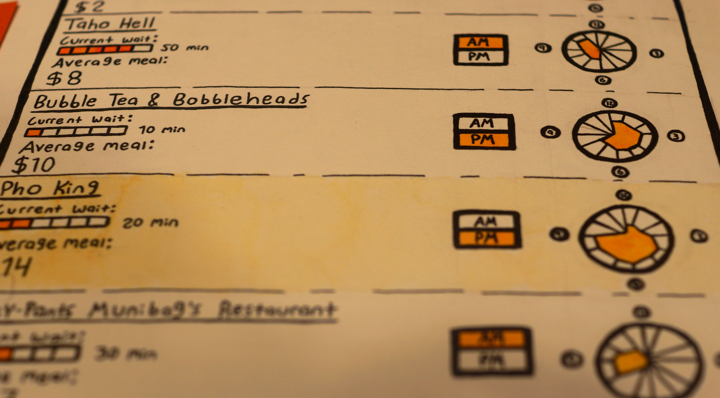 $2
Taho Hell
Current wait:
50 min
Average meal:
$8
AM
PM
Bubble Tea & Bobbleheads
Current wait:
10 min
Average meal:
$10
AM
PM
12
3
6
9
Pho King
Current wait:
20 min
verage meal:
14
AM
PM
Y-Pants Munibag's Restaurant
nt wait:
30 min
e meal:
AM
PM